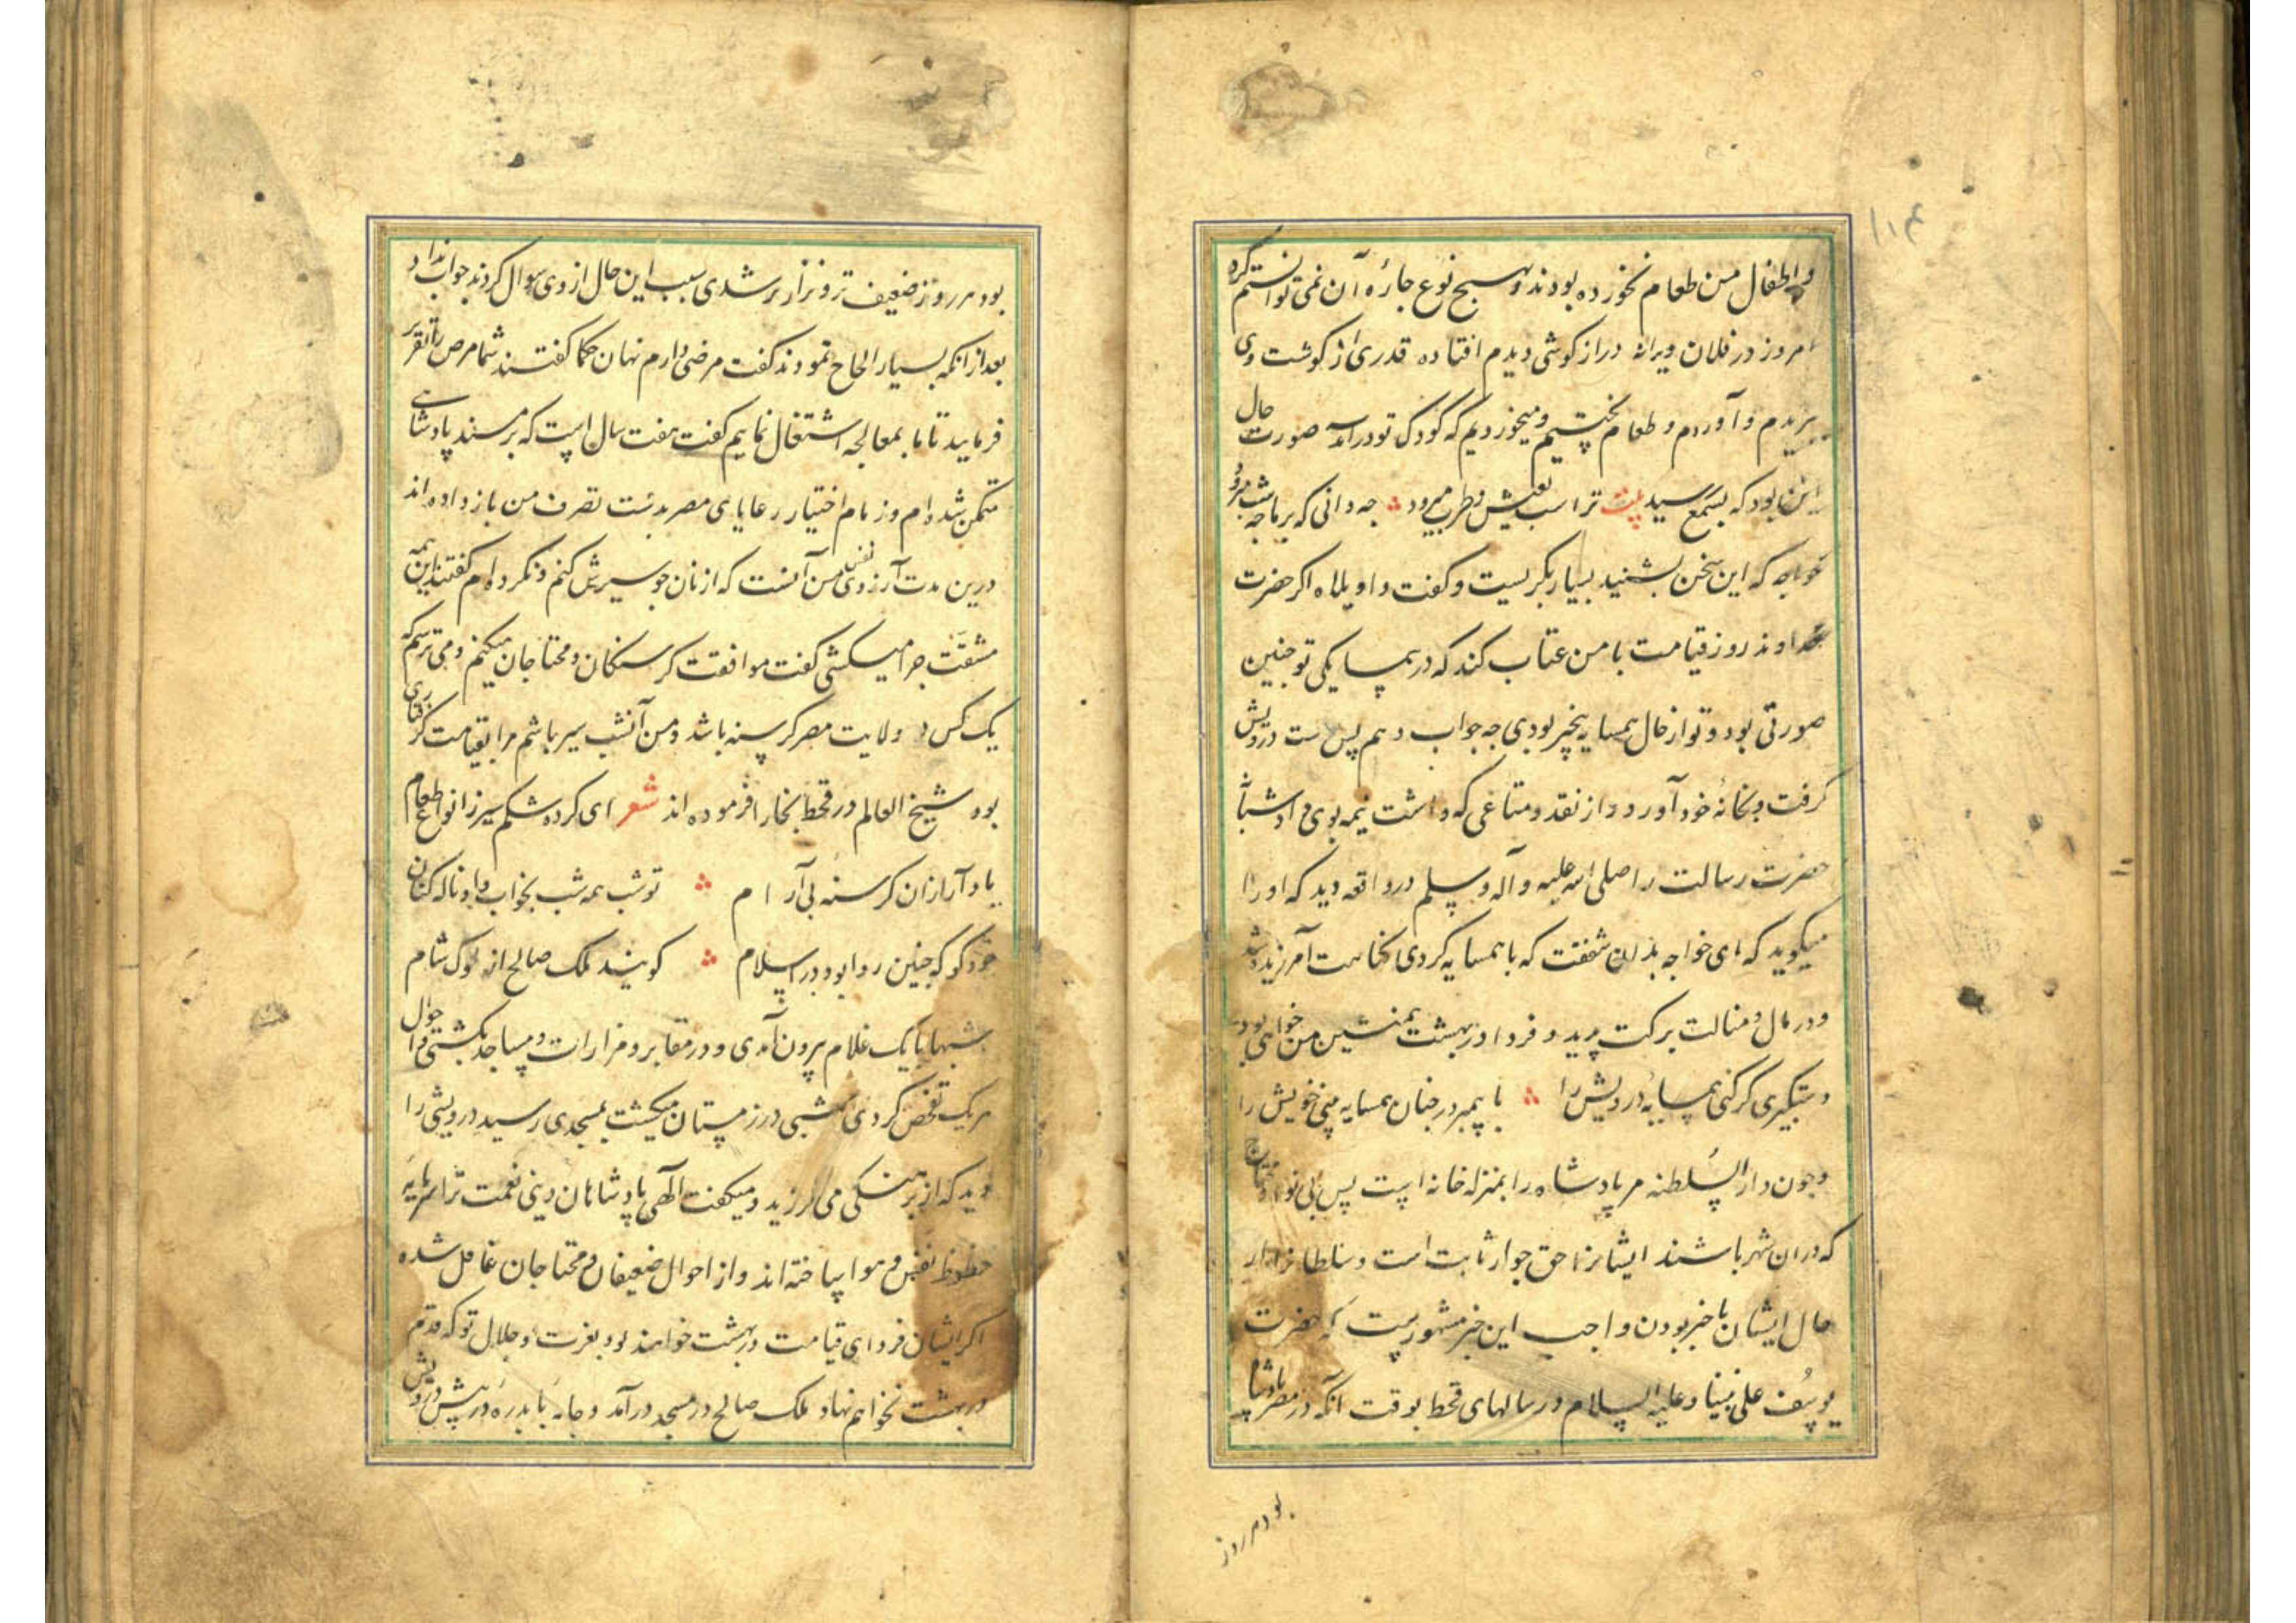 ۱۱۴
و اطفال من طعام نخورده بودند و بهیچ نوع چارهٔ آن نمی توانستم کرد
امروز در فلان ویرانه درازکوشی دیدم افتاده قدری از کوشت وی
بریدم و آوردم و طعام پختیم و میخوردیم که کودک تو درآمد صورت حال
این بود که بسمع رسید بیت ترا شب بعیش و طرب میرود جه دانی که بر ما جه شب میرود
خواجه که این سخن بشنید بسیار بکریست و کفت واویلاه اکر حضرت
خداوند روز قیامت با من عتاب کند که در همسایکی تو جنین
صورتی بود و تو از حال همسایه بیخبر بودی جه جواب دهم پس دست درویش
کرفت و بخانهٔ خود آورد و از نقد و متاعی که داشت نیمه بوی داد شبانه
حضرت رسالت را صلی الله علیه و آله و سلم در واقعه دید که او را
میکوید که ای خواجه بدان شفقت که با همسایه کردی کناهت آمرزیده شد
و در مال و منالت برکت پدید و فردا در بهشت همنشین من خواهی بود
دستکیری کر کنی همسایهٔ درویش را با پیمبر در جنان همسایه بینی خویش را
و جون دار السلطنه مر پادشاه را بمنزله خانه است پس بی نوا و محتاج
که دران شهر باشند ایشانرا حق جوار ثابت است و سلطانرا از
حال ایشان با خبر بودن واجب این خبر مشهورست که حضرت
یوسف علی نبینا و علیه السلام در سالهای قحط بوقت آنکه در مصر پادشاه
بود هر روز
بود هر روز ضعیف تر و نزار تر شدی سبب این حال از وی سوال کردند جواب نداد
بعد از انکه بسیار الحاح نمودند کفت مرضی دارم نهان حکما کفتند شما مرض را تقریر
فرمایید تا ما بمعالجه اشتغال نماییم کفت هفت سال است که بر مسند پادشاهی
متمکن شده ام و زمام اختیار رعایای مصر بدست تصرف من باز داده اند
درین مدت آرزوی نفس من آنست که از نان جو سیرش کنم و نکرده ام کفتند این همه
مشقت جرا میکشی کفت موافقت کرسنکان و محتاجان میکنم و می ترسم که
یک کس در ولایت مصر کرسنه باشد و من آنشب سیر باشم مرا بقیامت کرفتاری
بود شیخ العالم در قحط بخارا فرموده اند شعر ای کرده شکم سیر ز انواع طعام
یاد آر ازان کرسنه بی آرام تو شب همه شب بخواب و او ناله کنان
خود کو که جنین روا بود در اسلام کویند ملک صالح از ملوک شام
شبها با یک غلام بیرون آمدی و در مقابر و مزارات و مساجد بکشتی و احوال
هر یک تفحص کردی شبی در زمستان میکشت بمسجدی رسید درویشی را
دید که از برهنکی می لرزید و میکفت الهی پادشاهان دنیی نعمت ترا سرمایه
حظوظ نفس و هوا ساخته اند و از احوال ضعیفان و محتاجان غافل شده
اکر ایشان فردای قیامت در بهشت خواهند بود بعزت و جلال تو که قدم
در بهشت نخواهم نهاد ملک صالح در مسجد درآمد و جامه با بدرهٔ در پیش درویش